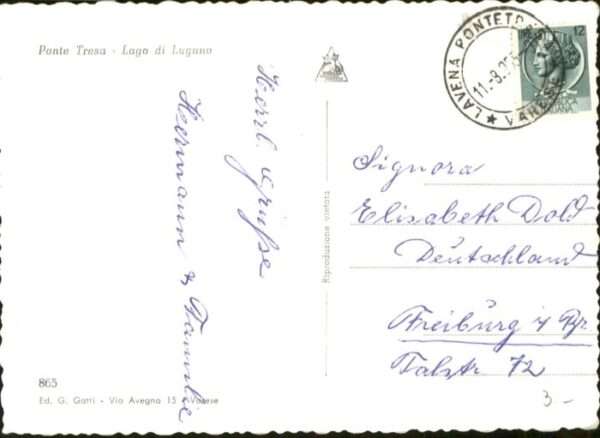 Ponte Tresa - Lago di Lugano
Herrl. Grüße
Hermann & Familie
865
Ed. G. Gatti - Via Avegno 15 - Varese
Riproduzione vietata
LAVENA PONTETRESA
11.-8.
VARESE
12
Signora
Elisabeth Dold
Deutschland
Freiburg i Br
Talstr. 72
3-